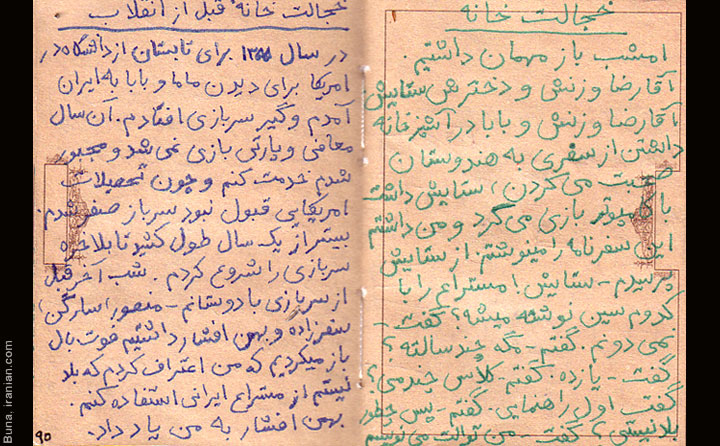 خجالت خانه
امشب باز مهمان داشتیم.
آقارضا و زنش و دخترش ستایش
آقارضا و زنش و بابا در آشپزخانه
داشتن از سفری به هندوستان
صحبت می کردن، ستایش داشت
با کامپیوتر بازی می کرد و من داشتم
این سفرنامه را مینوشتم. از ستایش
پرسیدم - ستایش! مستراح را با
کدوم سین نوشته میشه؟ گفت -
نمی دونم. گفتم - مگه چند سالته؟
گفت - یازده. گفتم - کلاس چندمی؟
گفت اول راهنمایی. گفتم - پس چطور
بلد نیستی؟ گفت - من توالت می نویسم
خجالت خانه قبل از انقلاب
در سال ۱۳۵۵ برای تابستان از دانشگاه در
امریکا برای دیدن ماما و بابا به ایران
آمدم و گیر سربازی افتادم. آن سال
معافی و پارتی بازی نمی شد و مجبور
شدم خدمت کنم و چون تحصیلات
امریکایی قبول نبود سرباز صفر شدم.
بیشتر از یک سال طول کشید تا بلاخره
سربازی را شروع کردم. شب آخر قبل
از سربازی با دوستانم - منصور (سارگن)
سفرزاده و بهمن افشار داشتیم فوت بال
باز میکردیم که من اعتراف کردم که بلد
نیستم از مستراح ایرانی استفاده کنم.
بهمن افشار به من یاد داد.
۹۰
Buna, iranian.com